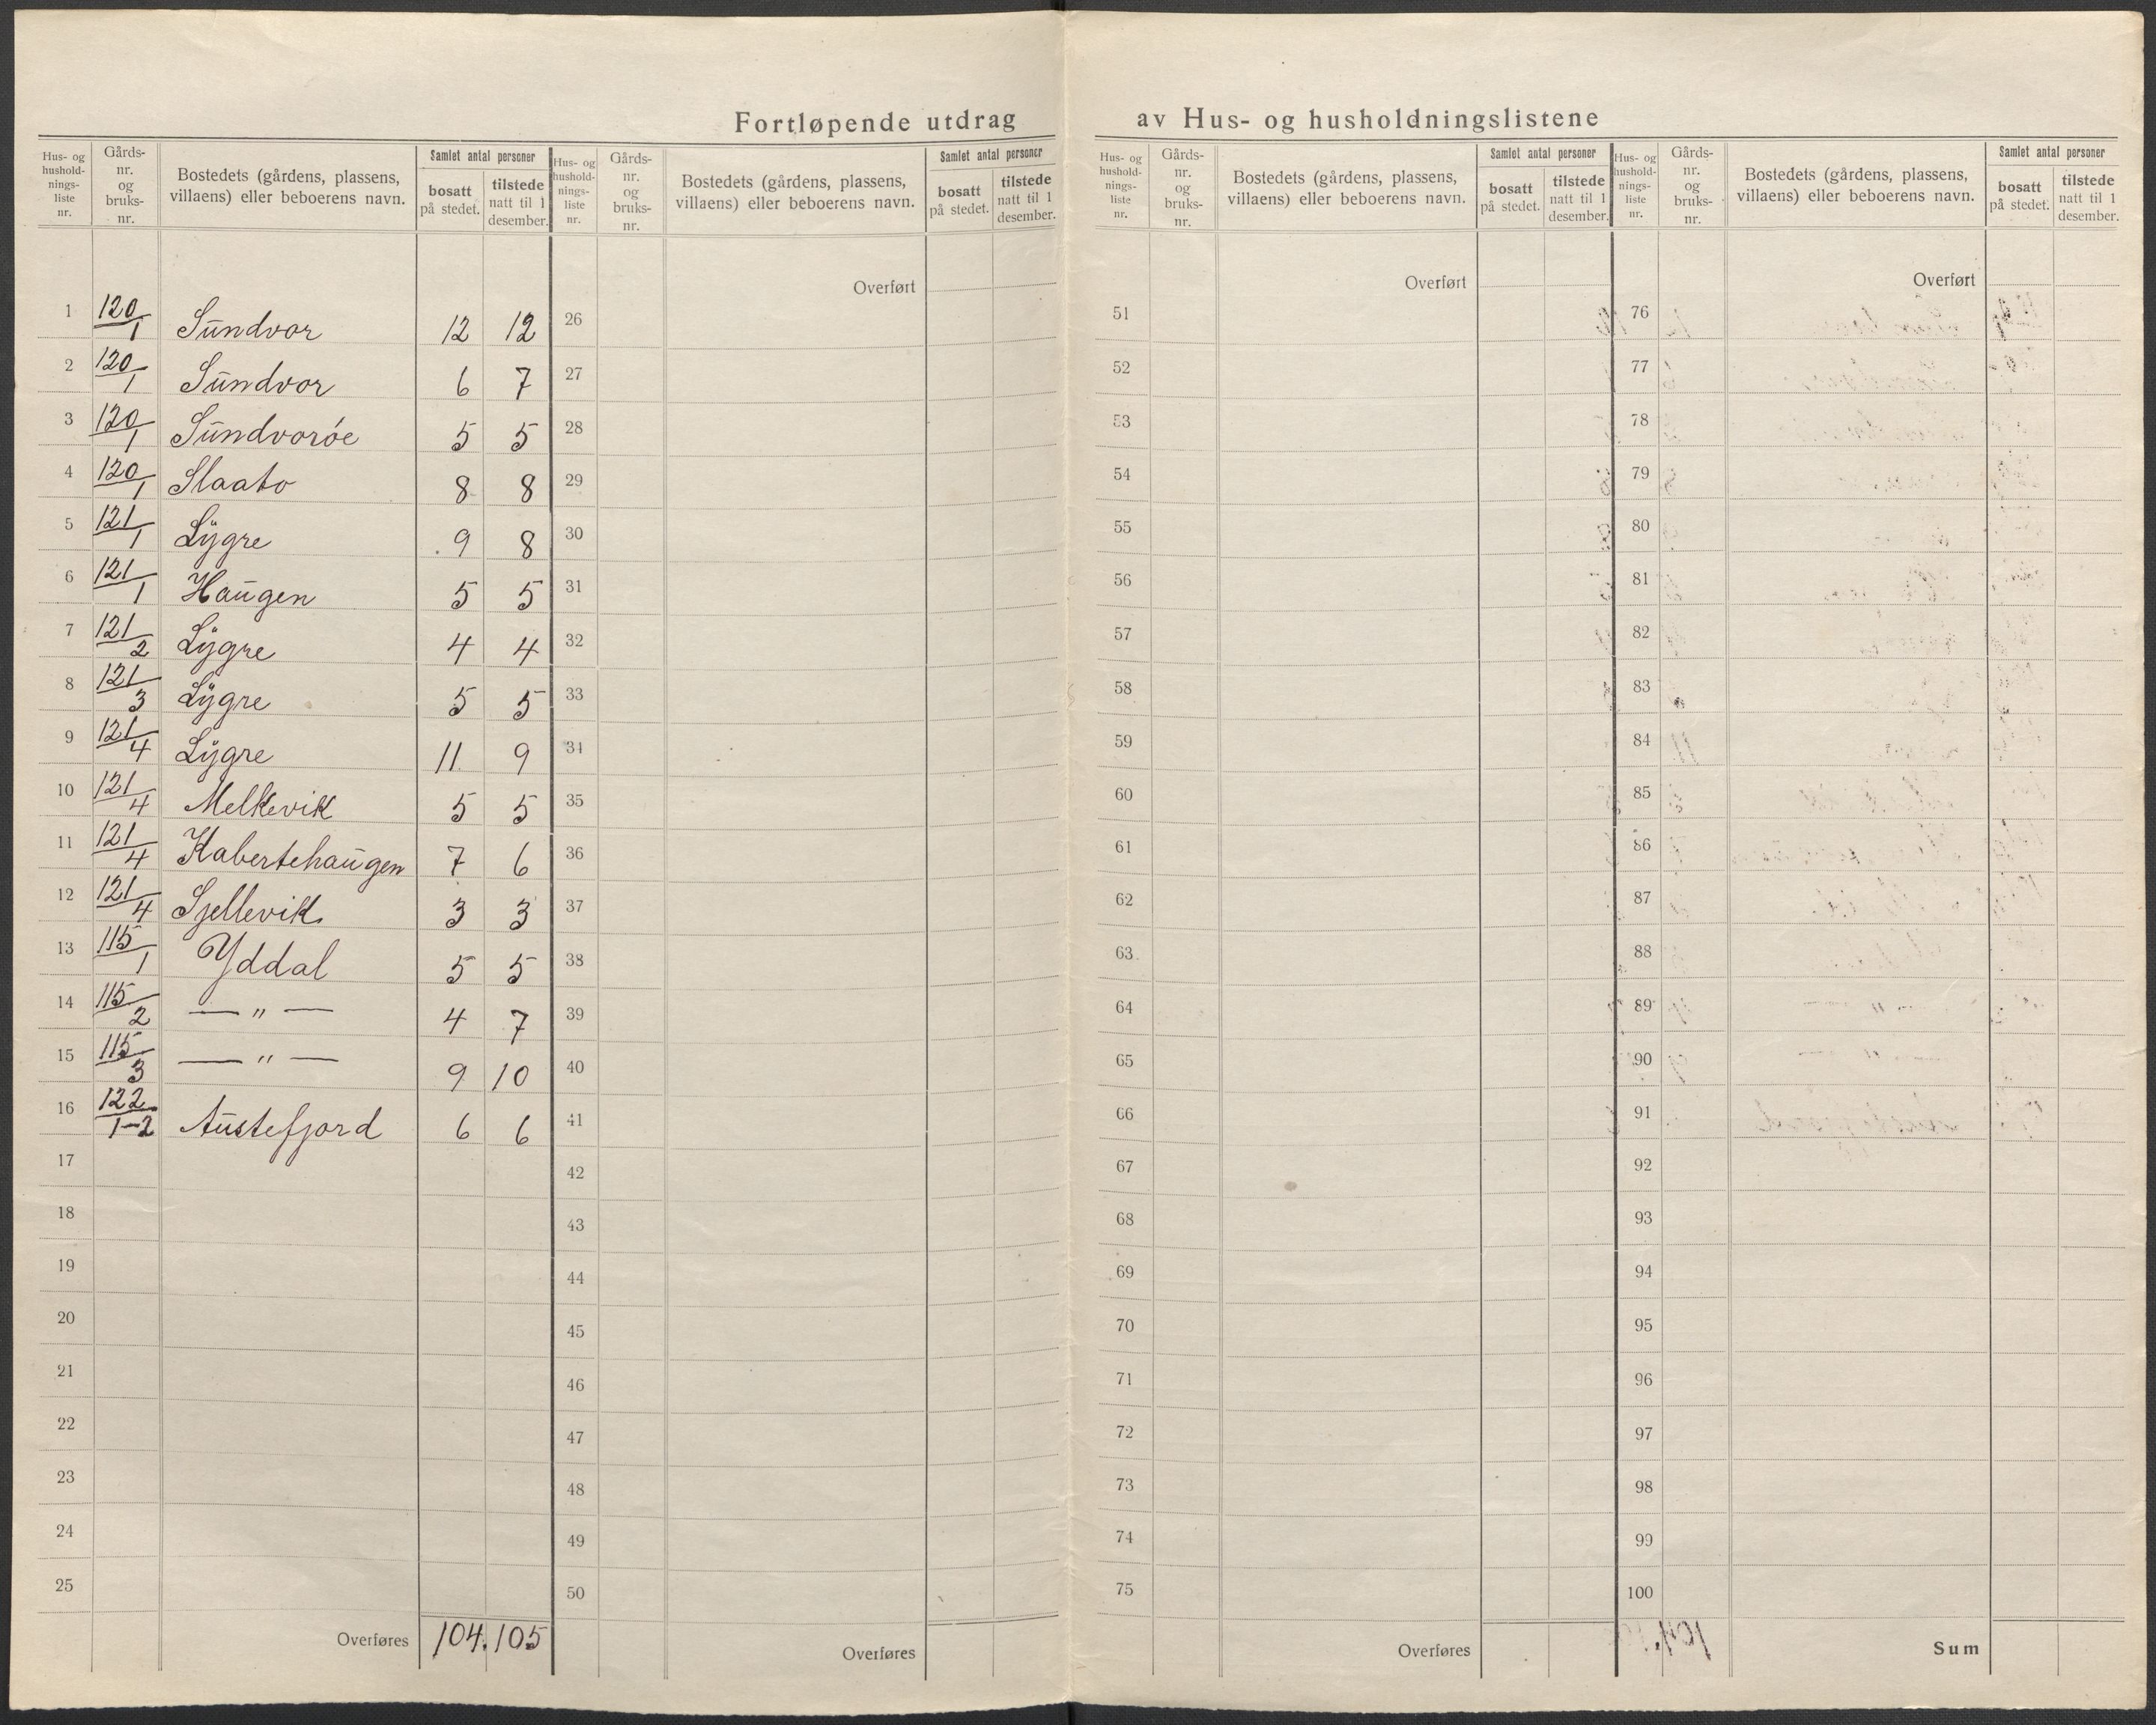 Fortløpende utdrag av Hus- og husholdningslistene
Hus- og hushold-nings-liste nr. | Gårds-nr. og bruks-nr. | Bostedets (gårdens, plassens, villaens) eller beboerens navn. | Samlet antal personer | bosatt på stedet. | tilstede natt til 1 desember.
1 120/1 Sundvor 12 12
2 120/1 Sundvor 6 7
3 120/1 Sundvoróe 5 5
4 120/1 Slaato 8 8
5 121/1 Lygre 9 8
6 121/1 Haugen 5 5
7 121/2 Lygre 4 4
8 121/3 Lygre 5 5
9 121/4 Lygre 11 9
10 121/4 Melkevik 5 5
11 121/4 Kabertehaugen 7 6
12 121/4 Sjellevik 3 3
13 115/1 Yddal 5 5
14 115/2 — " — 4 7
15 115/3 — " — 9 10
16 122/1-2 Austefjord 6 6
17
18
19
20
21
22
23
24
25
Overføres 104. 105
Hus- og hushold-nings-liste nr. | Gårds-nr. og bruks-nr. | Bostedets (gårdens, plassens, villaens) eller beboerens navn. | Samlet antal personer | bosatt på stedet. | tilstede natt til 1 desember.
Overført
26
27
28
29
30
31
32
33
34
35
36
37
38
39
40
41
42
43
44
45
46
47
48
49
50
Overføres
Hus- og hushold-nings-liste nr. | Gårds-nr. og bruks-nr. | Bostedets (gårdens, plassens, villaens) eller beboerens navn. | Samlet antal personer | bosatt på stedet. | tilstede natt til 1 desember.
Overført
51
52
53
54
55
56
57
58
59
60
61
62
63
64
65
66
67
68
69
70
71
72
73
74
75
Overføres
Hus- og hushold-nings-liste nr. | Gårds-nr. og bruks-nr. | Bostedets (gårdens, plassens, villaens) eller beboerens navn. | Samlet antal personer | bosatt på stedet. | tilstede natt til 1 desember.
Overført
76
77
78
79
80
81
82
83
84
85
86
87
88
89
90
91
92
93
94
95
96
97
98
99
100
Sum